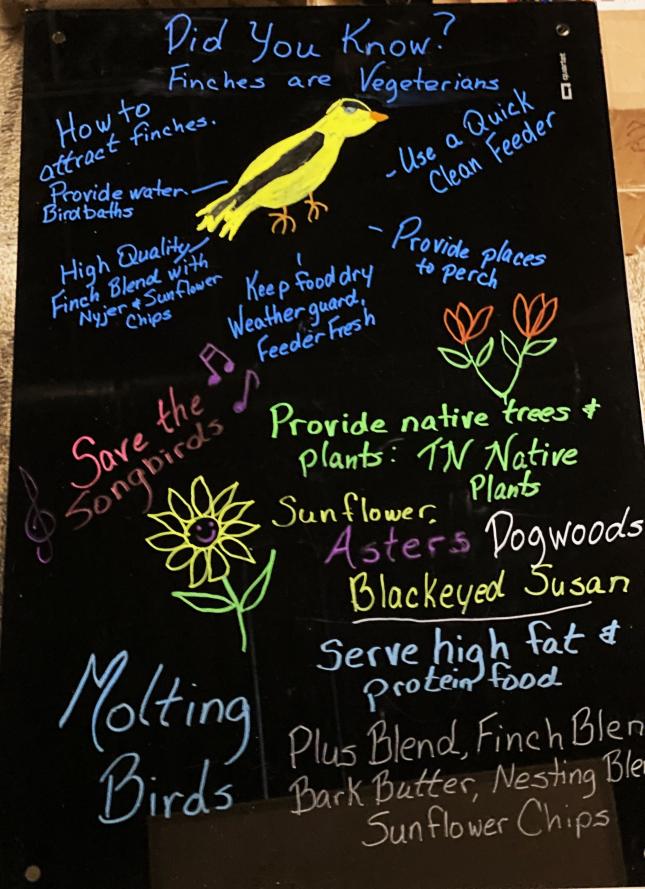 Did You Know?
Finches are Vegeterians
How to
attract finches.
Provide water.
Birdbaths
High Quality
Finch Blend with
Nyjer & Sunflower
Chips
Keep food dry
Weather guard,
Feeder Fresh
- Use a Quick
Clean Feeder
- Provide places
to perch
quartet
Save the
Songbirds
Provide native trees &
plants: TN Native
Plants
Sunflower,
Asters Dogwoods
Blackeyed Susan
Molting
Birds
Serve high fat &
protein food
Plus Blend, Finch Blen
Bark Butter, Nesting Ble
Sunflower Chips